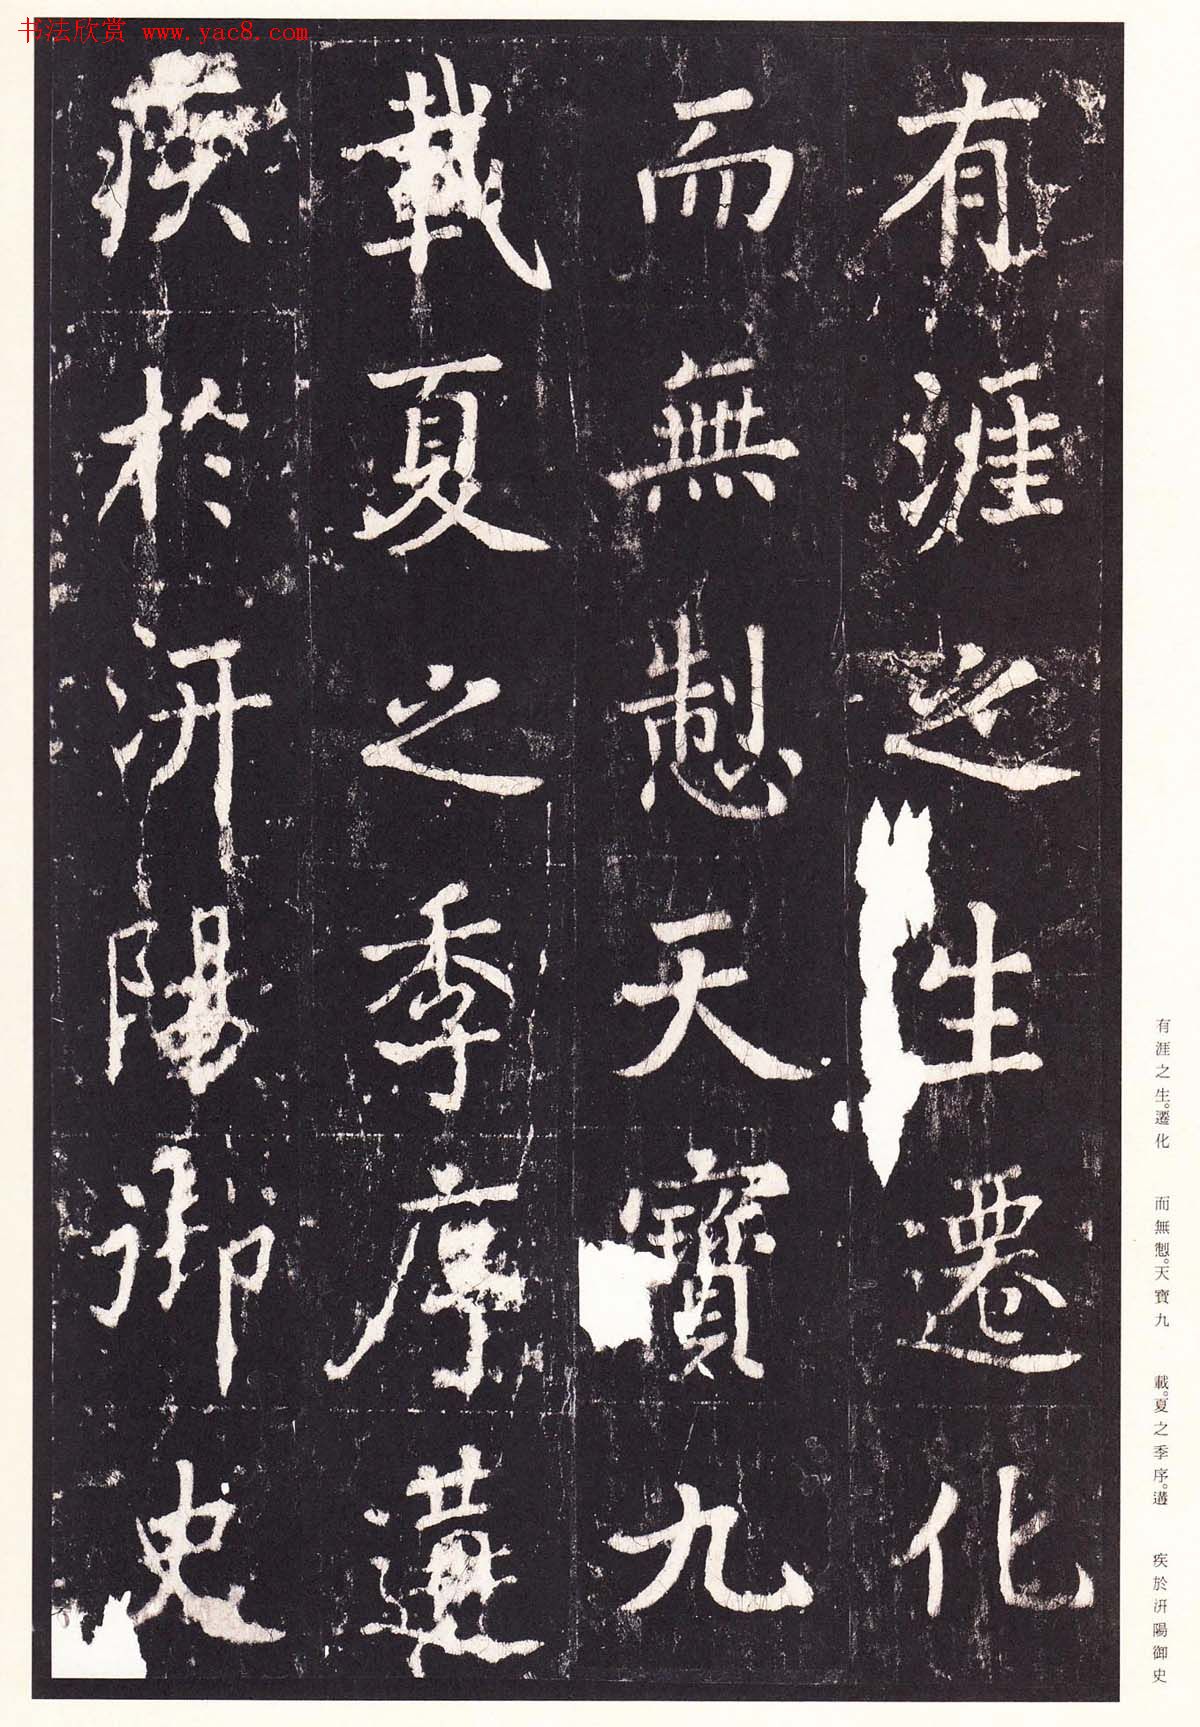 书法欣赏 www.yac8.com
有涯之生遷化
而無㓡天寶九
載夏之季序遘
疾於汧陽御史
有涯之生。遷化
而無㓡。天寶九
載。夏之季序。遘
疾於汧陽御史